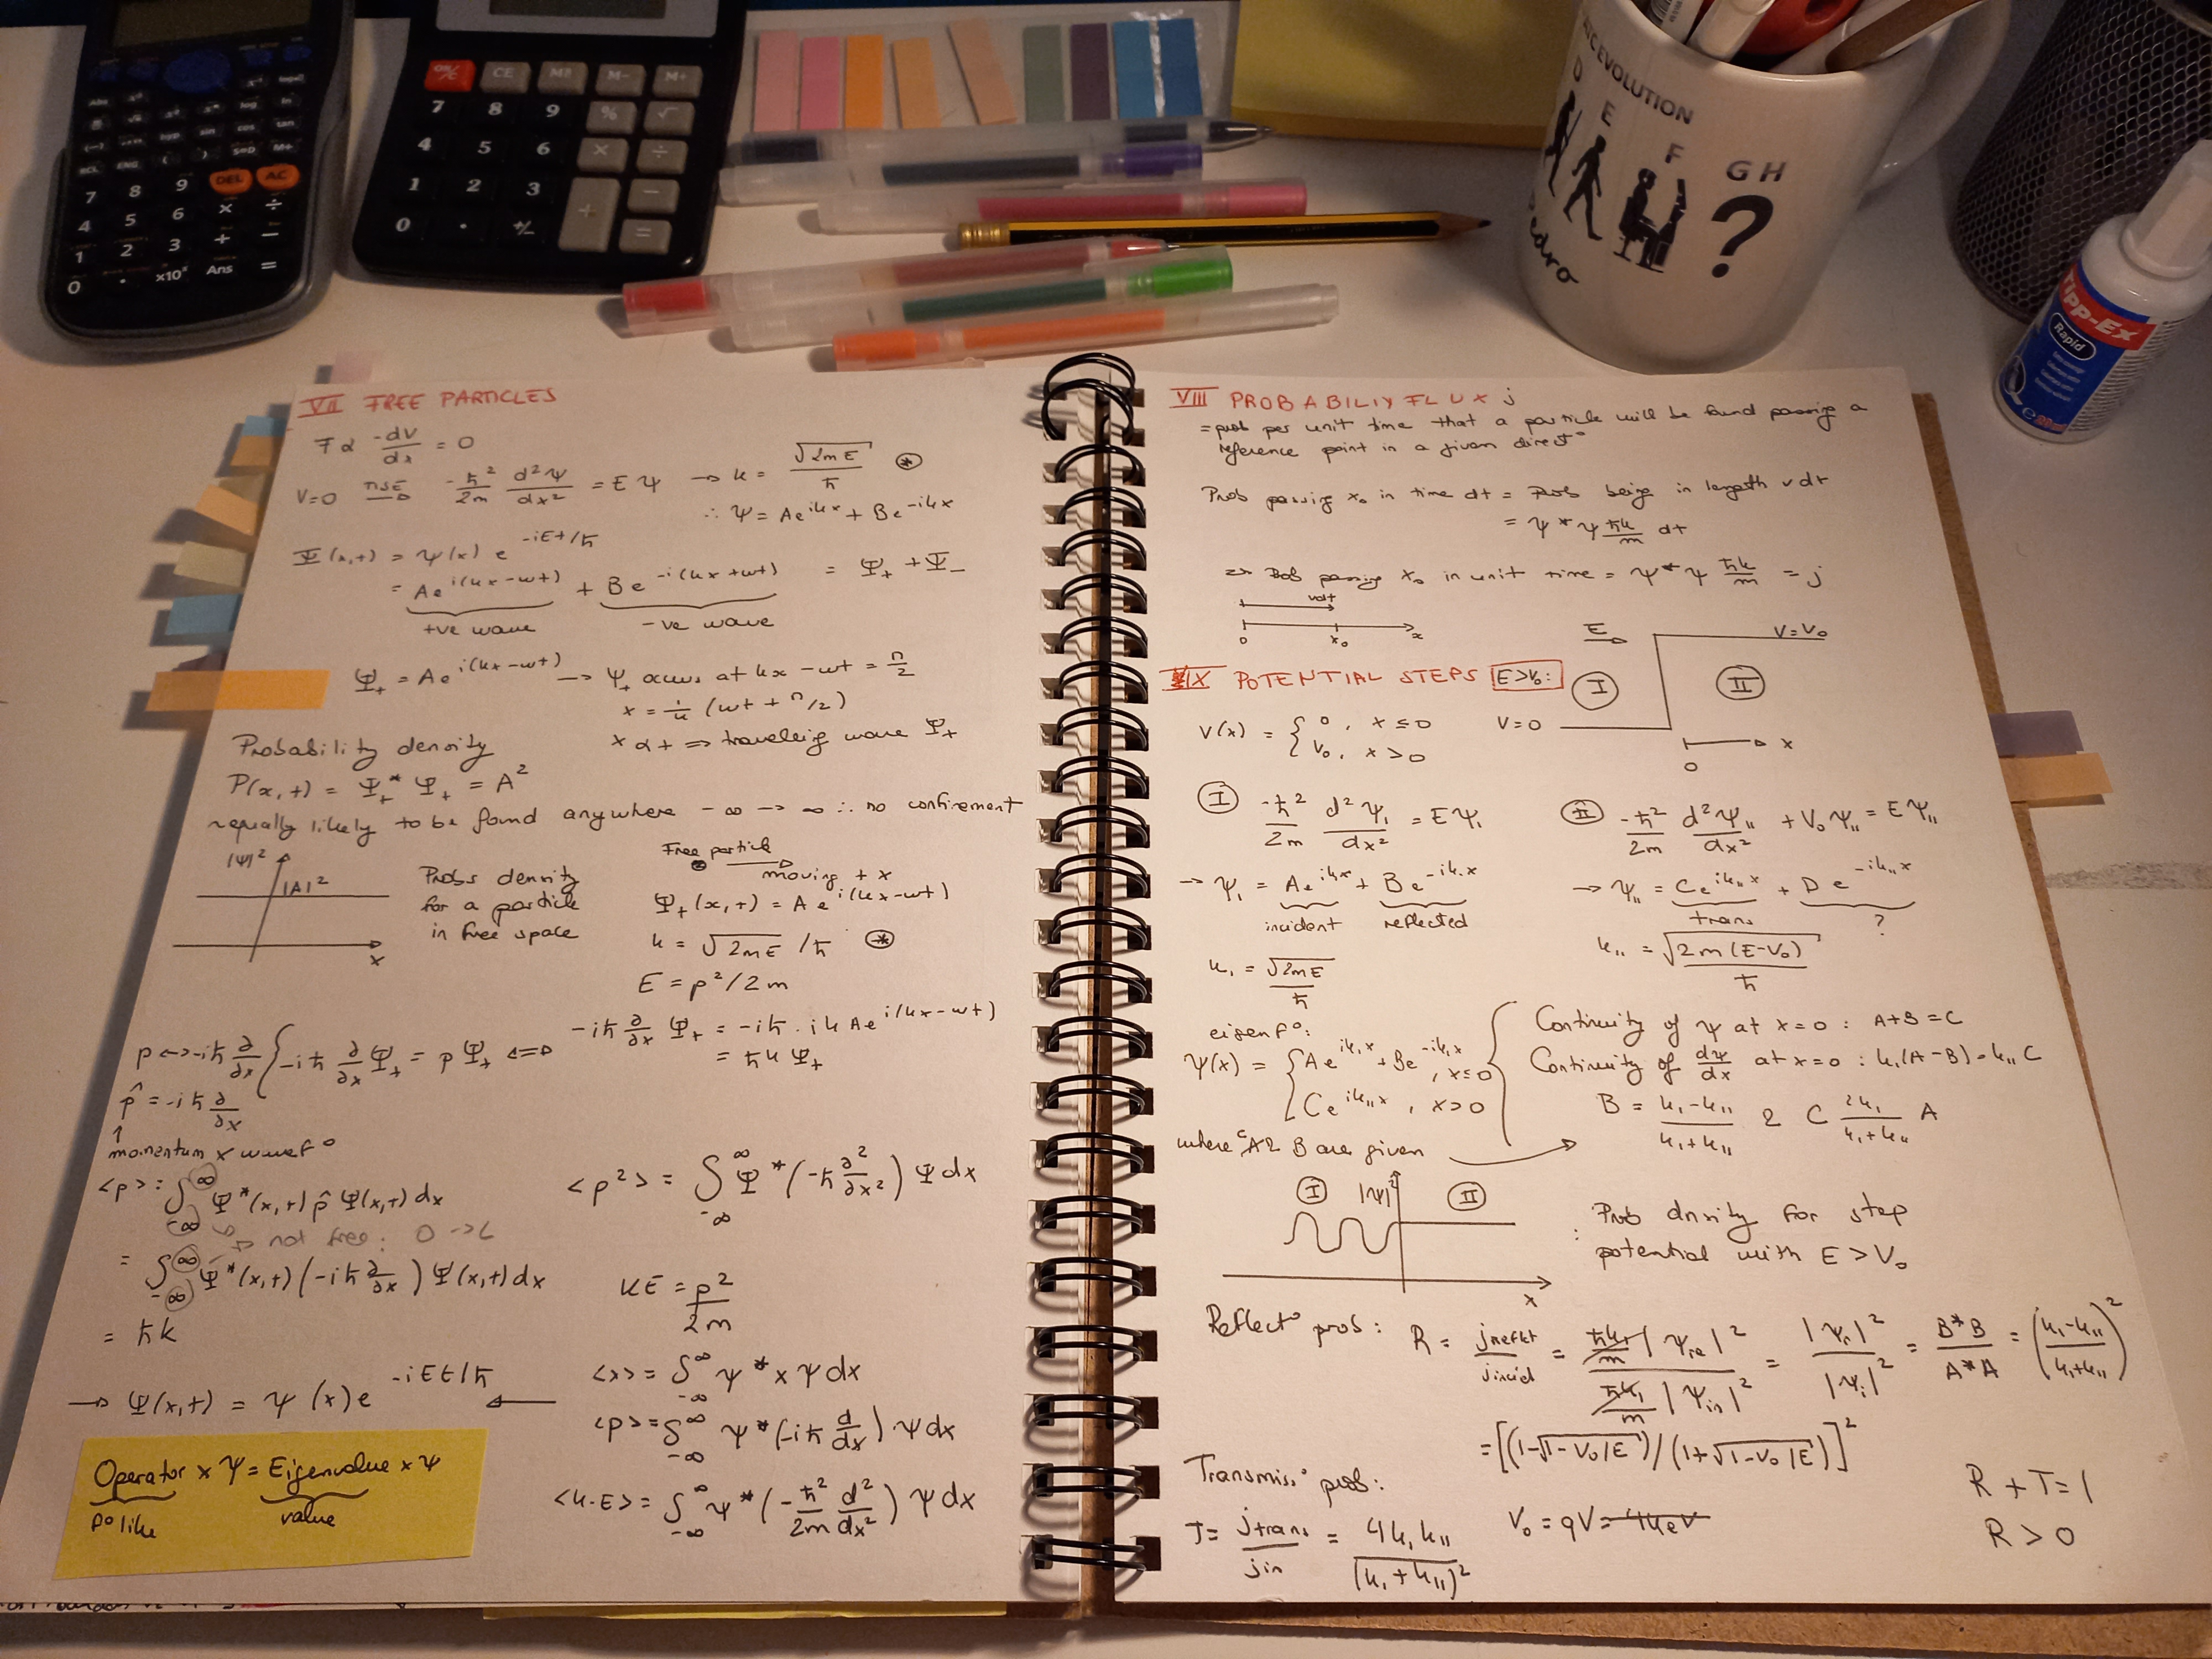 VII FREE PARTICLES
F α -dV/dx = 0
V=0 TISE → -ħ²/2m d²ψ/dx² = Eψ → k = √2mE/ħ ⊛
∴ ψ = Ae^ikx + Be^-ikx
Ψ(x,t) = ψ(x) e^-iEt/ħ
= Ae^i(kx-ωt) + Be^-i(kx+ωt) = Ψ₊ + Ψ₋
+ve wave -ve wave
Ψ₊ = Ae^i(kx-ωt) → Ψ₊ occurs at kx-ωt = π/2
x = 1/k (ωt + π/2)
x α t ⇒ traveling wave Ψ₊
Probability density
P(x,t) = Ψ₊*Ψ₊ = A²
equally likely to be found anywhere -∞ → ∞ ∴ no confinement
|ψ|²
|A|²
x
Prob density
for a particle
in free space
Free particle moving +x
Ψ₊(x,t) = Ae^i(kx-ωt)
k = √2mE/ħ ⊛
E = p²/2m
p ↔ -iħ ∂/∂x { -iħ ∂/∂x Ψ₊ = pΨ₊ ⇔ -iħ ∂/∂x Ψ₊ = -iħ . ik Ae^i(kx-ωt)
= ħkΨ₊
p̂ = -iħ ∂/∂x
momentum x wavef°
<p> : ∫_-∞^∞ Ψ*(x,t) p̂ Ψ(x,t) dx
→ not free : 0 → L
= ∫_-∞^∞ Ψ*(x,t) (-iħ ∂/∂x) Ψ(x,t) dx
= ħk
<p²> = ∫_-∞^∞ Ψ* (-ħ ∂²/∂x²) Ψ dx
KE = p²/2m
→ Ψ(x,t) = ψ(x) e^-iEt/ħ
<x> = ∫_-∞^∞ ψ* x ψ dx
<p> = ∫_-∞^∞ ψ* (-iħ d/dx) ψ dx
<K.E> = ∫_-∞^∞ ψ* (-ħ²/2m d²/dx²) ψ dx
Operator x ψ = Eigenvalue x ψ
po like value
VIII PROBABILIY FLUX j
= prob per unit time that a particle will be found passing a
reference point in a given direct°
Prob passing x₀ in time dt = Prob being in length vdt
= ψ*ψ ħk/m dt
vdt
0 x₀ x
=> Prob passing x₀ in unit time = ψ*ψ ħk/m = j
IX POTENTIAL STEPS E>V₀:
V(x) = { 0, x ≤ 0
V₀, x > 0
E
V=0 I II V=V₀
0 x
I -ħ²/2m d²ψ₁/dx² = Eψ₁
→ ψ₁ = Ae^ik₁x + Be^-ik₁x
incident reflected
k₁ = √2mE/ħ
II -ħ²/2m d²ψ₁₁/dx² + V₀ψ₁₁ = Eψ₁₁
→ ψ₁₁ = Ce^ik₁₁x + De^-ik₁₁x
trans ?
k₁₁ = √2m(E-V₀)/ħ
eigenf°:
ψ(x) = { Ae^ik₁x + Be^-ik₁x, x≤0
Ce^ik₁₁x, x>0
Continuity of ψ at x=0 : A+B = C
Continuity of dψ/dx at x=0 : k₁(A-B) = k₁₁C
where C, A & B are given B = k₁-k₁₁/k₁+k₁₁ & C 2k₁/k₁+k₁₁ A
I |ψ|² II
x
: Prob density for step
potential with E > V₀
Reflect° prob : R = jreflect/jincid = ħk₁/m |ψre|²/ħk₁/m |ψin|² = |ψr|²/|ψi|² = B*B/A*A = (k₁-k₁₁/k₁+k₁₁)²
= [(1-√1-V₀/E)/(1+√1-V₀/E)]²
Transmiss° prob :
T = jtrans/jin = 4k₁k₁₁/(k₁+k₁₁)²
V₀ = qV
R + T = 1
R > 0
CE
MR
M-
M+
%
√
7
8
9
÷
4
5
6
×
1
2
3
-
0
.
+/-
+
=
7
8
9
DEL
AC
4
5
6
×
÷
1
2
3
+
-
0
.
×10ˣ
Ans
=
EVOLUTION
D E F GH
?
Tipp-Ex
Rapid